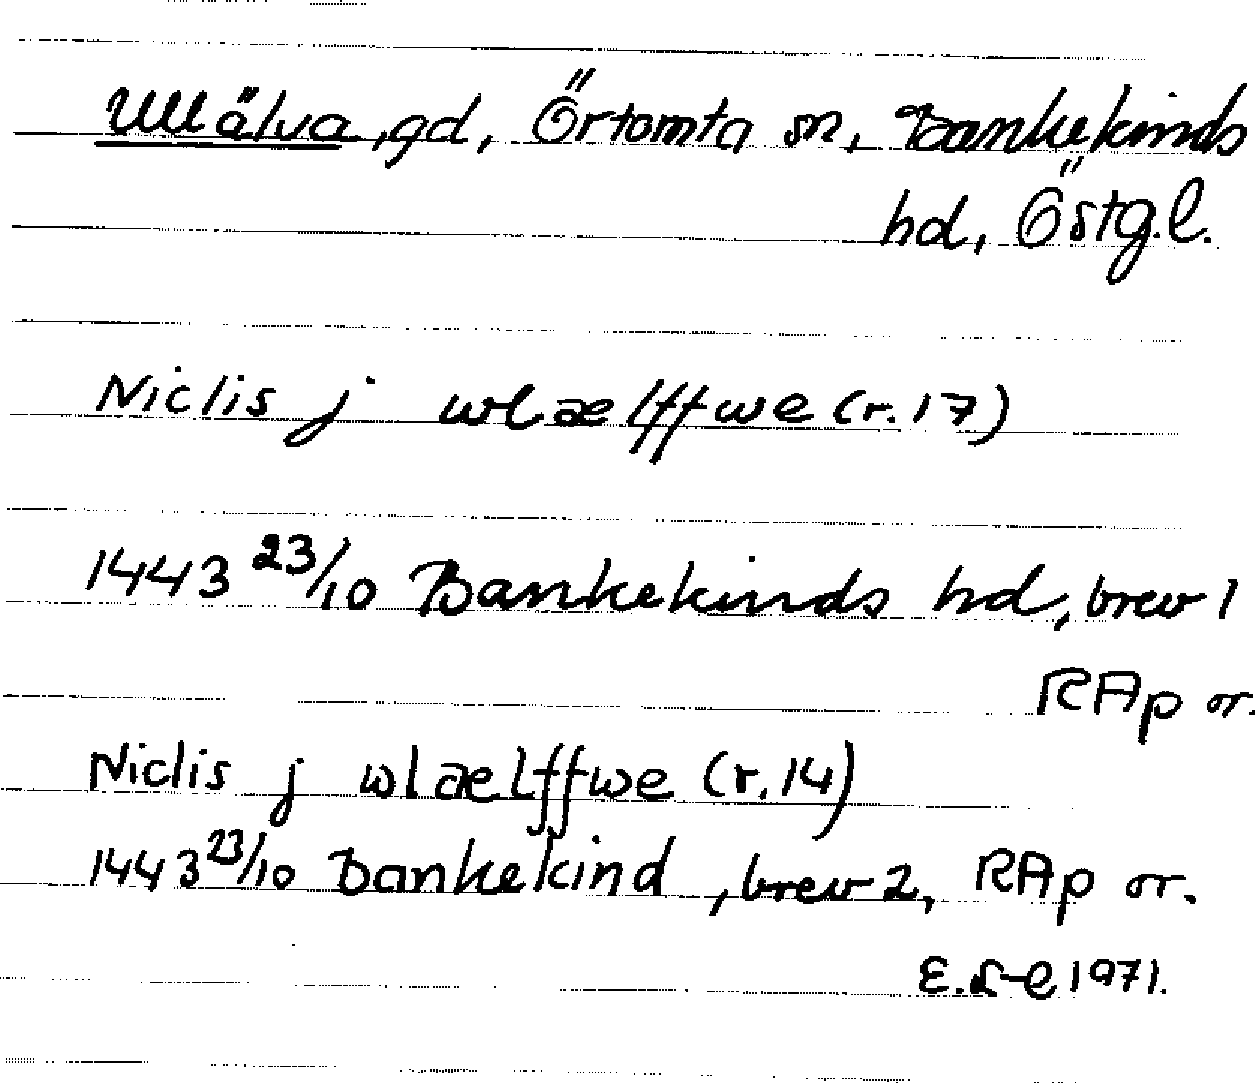 Ullälva, gd, Örtomta sn, Bankekinds
hd, Östg.l.
Niclis j wlaelffwe (r.17)
1443 23/10 Bankekinds hd, brev 1
RAp or.
Niclis j wlaelffwe (r.14)
1443 23/10 Bankekind, brev 2, RAp or.
E.S-e 1971.